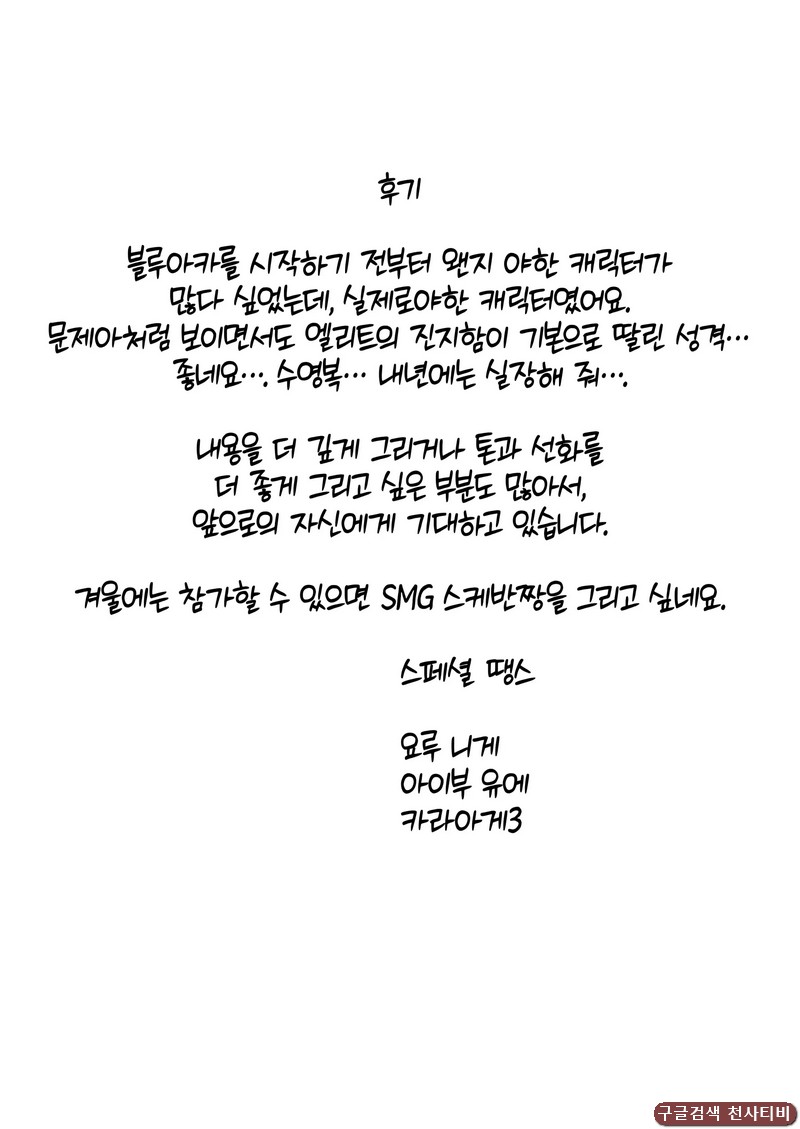 후기
블루아카를 시작하기 전부터 왠지 야한 캐릭터가
많다 싶었는데, 실제로야한 캐릭터였어요.
문제아처럼 보이면서도 엘리트의 진지함이 기본으로 딸린 성격…
좋네요…. 수영복… 내년에는 실장해 줘….
내용을 더 깊게 그리거나 톤과 선화를
더 좋게 그리고 싶은 부분도 많아서,
앞으로의 자신에게 기대하고 있습니다.
겨울에는 참가할 수 있으면 SMG 스케반짱을 그리고 싶네요.
스페셜 땡스
요루 니게
아이부 유에
카라아게3
구글검색 천사티비